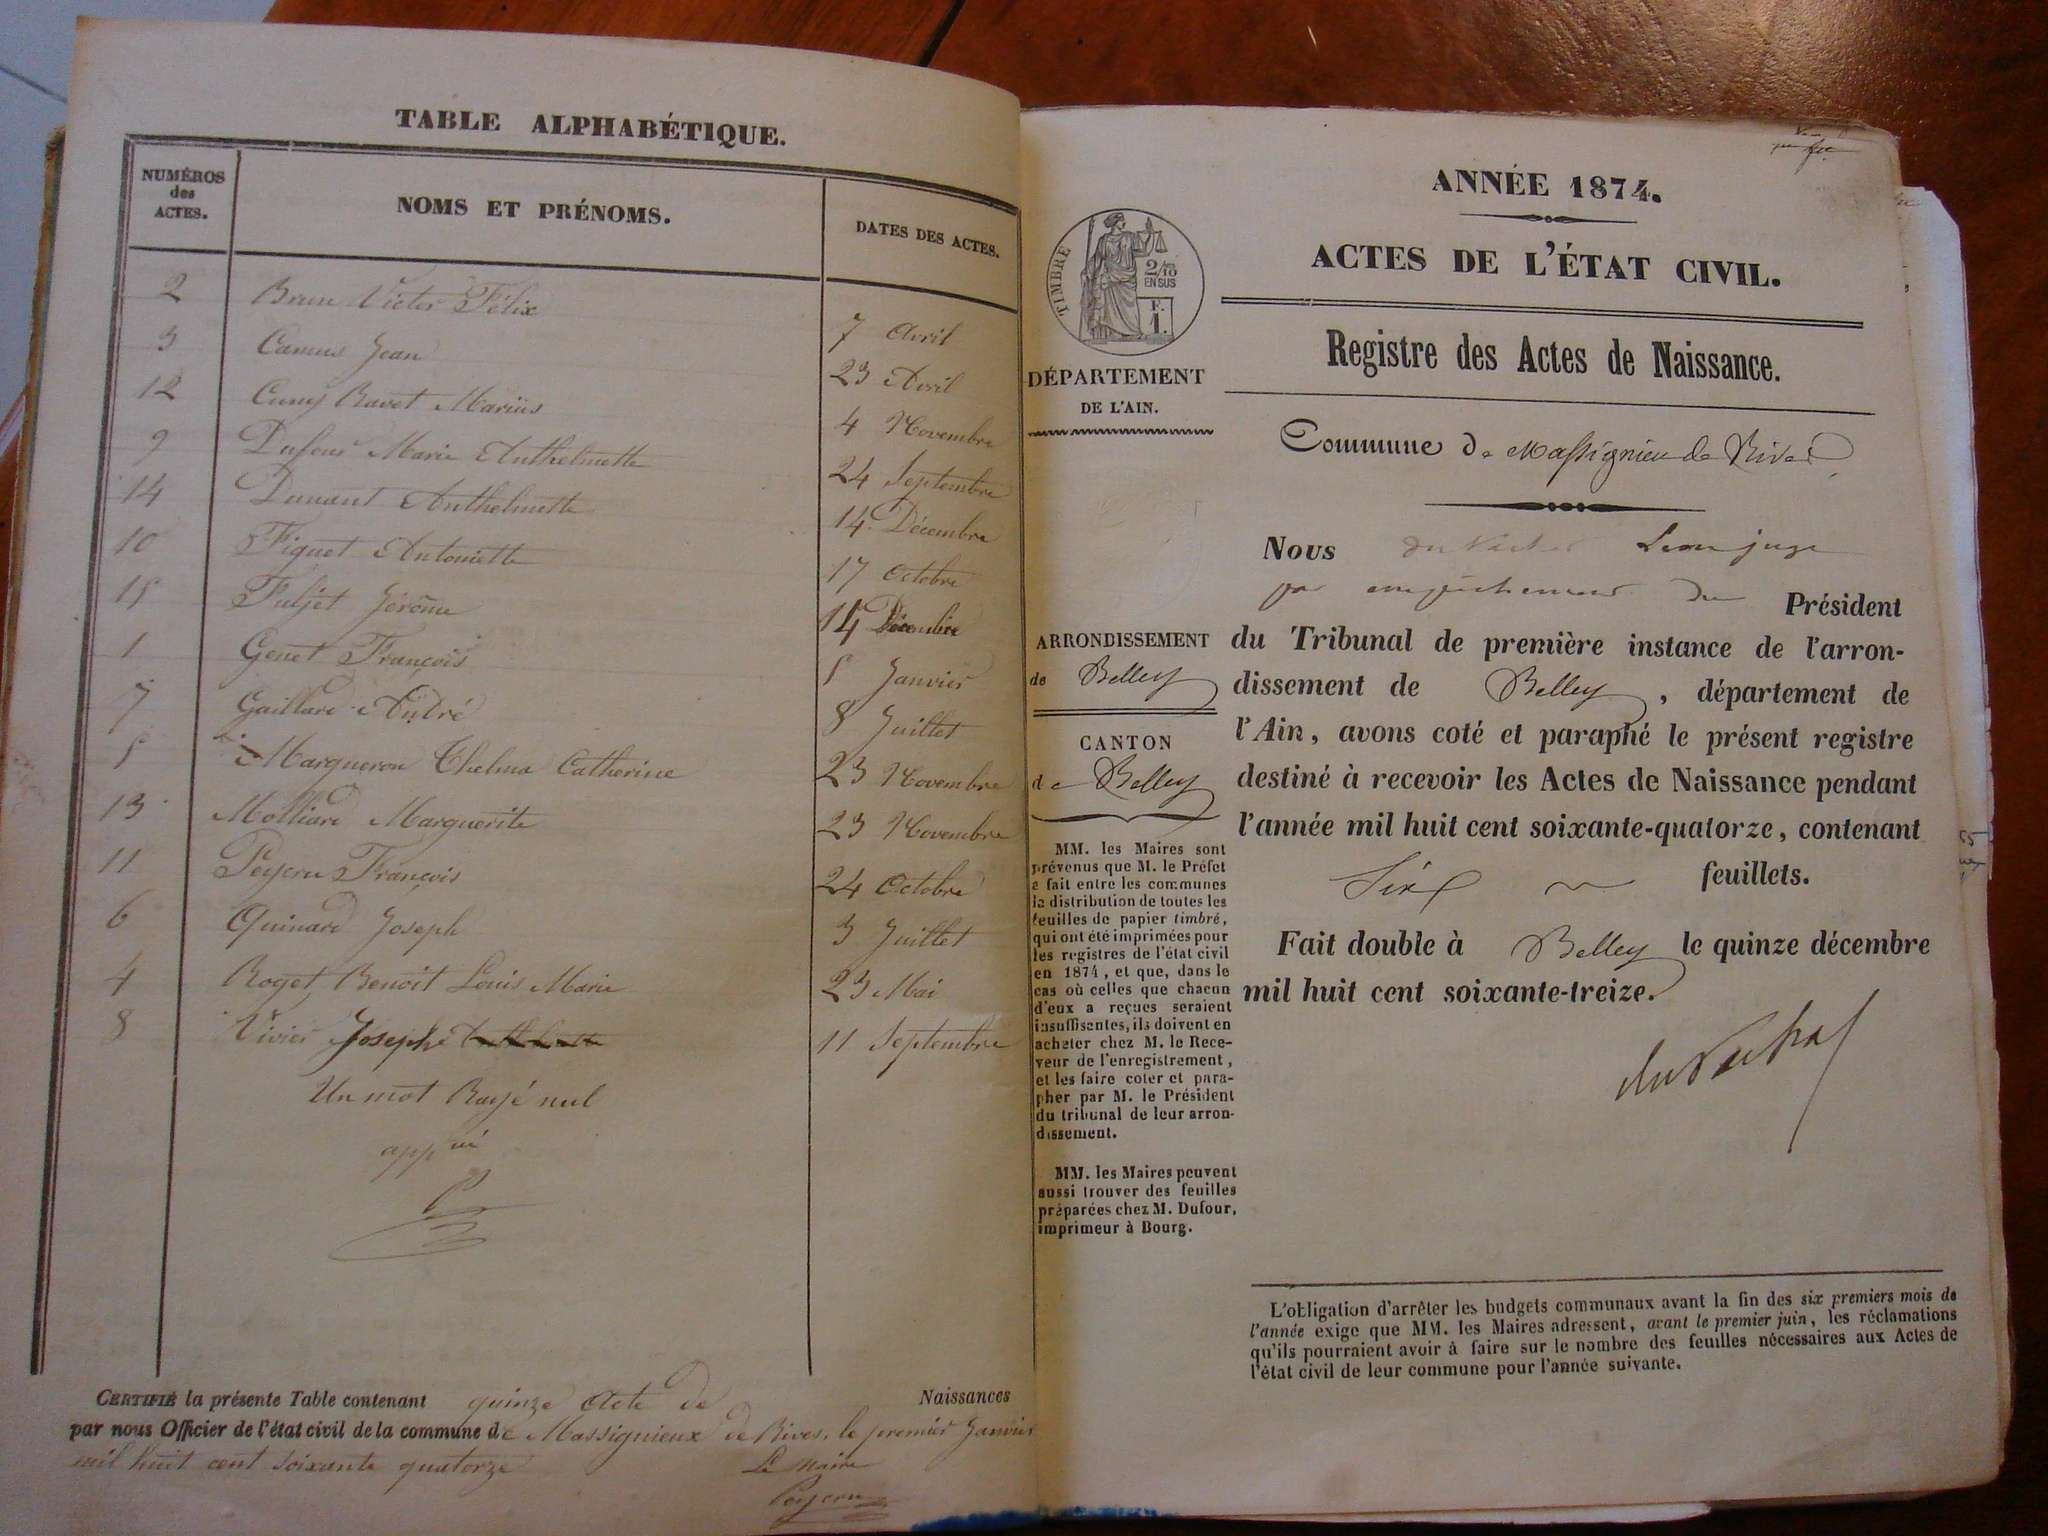 TABLE ALPHABÉTIQUE.
NUMÉROS
des
ACTES.
NOMS ET PRÉNOMS.
DATES DES ACTES.
2 Brun Victor Félix 7 Avril
3 Camus Jean 23 Avril
12 Cuny Ravet Mariüs 4 Novembre
9 Dufour Marie Anthelmette 24 Septembre
14 Dunant Anthelmette 14 Décembre
10 Figuet Antoniette 17 Octobre
15 Fuljet Jérôme 14 Décembre
1 Genet François 5 Janvier
7 Gaillard André 8 Juillet
5 Margueron Thelma Catherine 23 Novembre
13 Molliard Marguerite 23 Novembre
11 Peycru François 24 Octobre
6 Quinard Joseph 3 Juillet
4 Roget Benoit Louis Marie 23 Mai
8 Vivier Joseph 11 Septembre
Un mot Rayé nul
CERTIFIÉ la présente Table contenant quinze Acte de Naissances
par nous Officier de l'état civil de la commune de Massignieux de Rives, le premier Janvier
mil huit cent soixante quatorze
Le Maire
Peycru
ANNÉE 1874.
ACTES DE L'ÉTAT CIVIL.
Registre des Actes de Naissance.
Commune de Massignieu de Rives
TIMBRE
2/10
EN SUS
F.
1.
DÉPARTEMENT
DE L'AIN.
ARRONDISSEMENT
de Belley
CANTON
de Belley
MM. les Maires sont
prévenus que M. le Préfet
a fait entre les communes
la distribution de toutes les
feuilles de papier timbré,
qui ont été imprimées pour
les registres de l'état civil
en 1874, et que, dans le
cas où celles que chacun
d'eux a reçues seraient
insuffisantes, ils doivent en
acheter chez M. le Rece-
veur de l'enregistrement,
et les faire coter et para-
pher par M. le Président
du tribunal de leur arron-
dissement.
MM. les Maires peuvent
aussi trouver des feuilles
préparées chez M. Dufour,
imprimeur à Bourg.
Nous juge
par empêchement du Président
du Tribunal de première instance de l'arron-
dissement de Belley, département de
l'Ain, avons coté et paraphé le présent registre
destiné à recevoir les Actes de Naissance pendant
l'année mil huit cent soixante-quatorze, contenant
Six feuillets.
Fait double à Belley le quinze décembre
mil huit cent soixante-treize.
L'obligation d'arrêter les budgets communaux avant la fin des six premiers mois de
l'année exige que MM. les Maires adressent, avant le premier juin, les réclamations
qu'ils pourraient avoir à faire sur le nombre des feuilles nécessaires aux Actes de
l'état civil de leur commune pour l'année suivante.